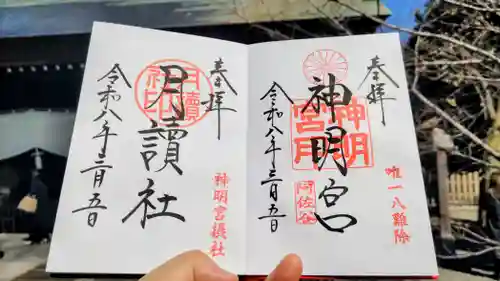 奉拝
神明宮
神明宮
阿佐谷
令和八年三月五日
唯一八難除
奉拝
月讀社
令和八年三月五日
神明宮摂社